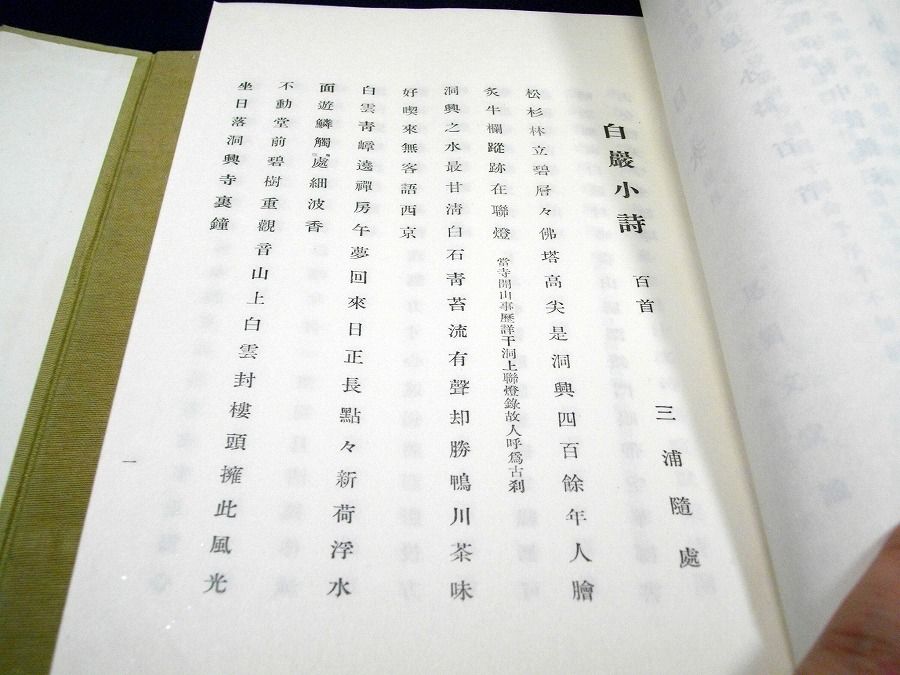 白巖小詩　百首
三浦隨處
松杉林立碧層々佛塔高尖是洞興四百餘年人膾
炙牛欄蹤跡在聯燈　當寺開山事歷詳于洞上聯燈錄故人呼爲古刹
洞興之水最甘淸白石靑苔流有聲却勝鴨川茶味
好喫來無客語西京
白雲靑嶂遶禪房午夢回來日正長點々新荷浮水
面遊鱗觸處細波香
不動堂前碧樹重觀音山上白雲封樓頭擁此風光
坐日落洞興寺裏鐘
一